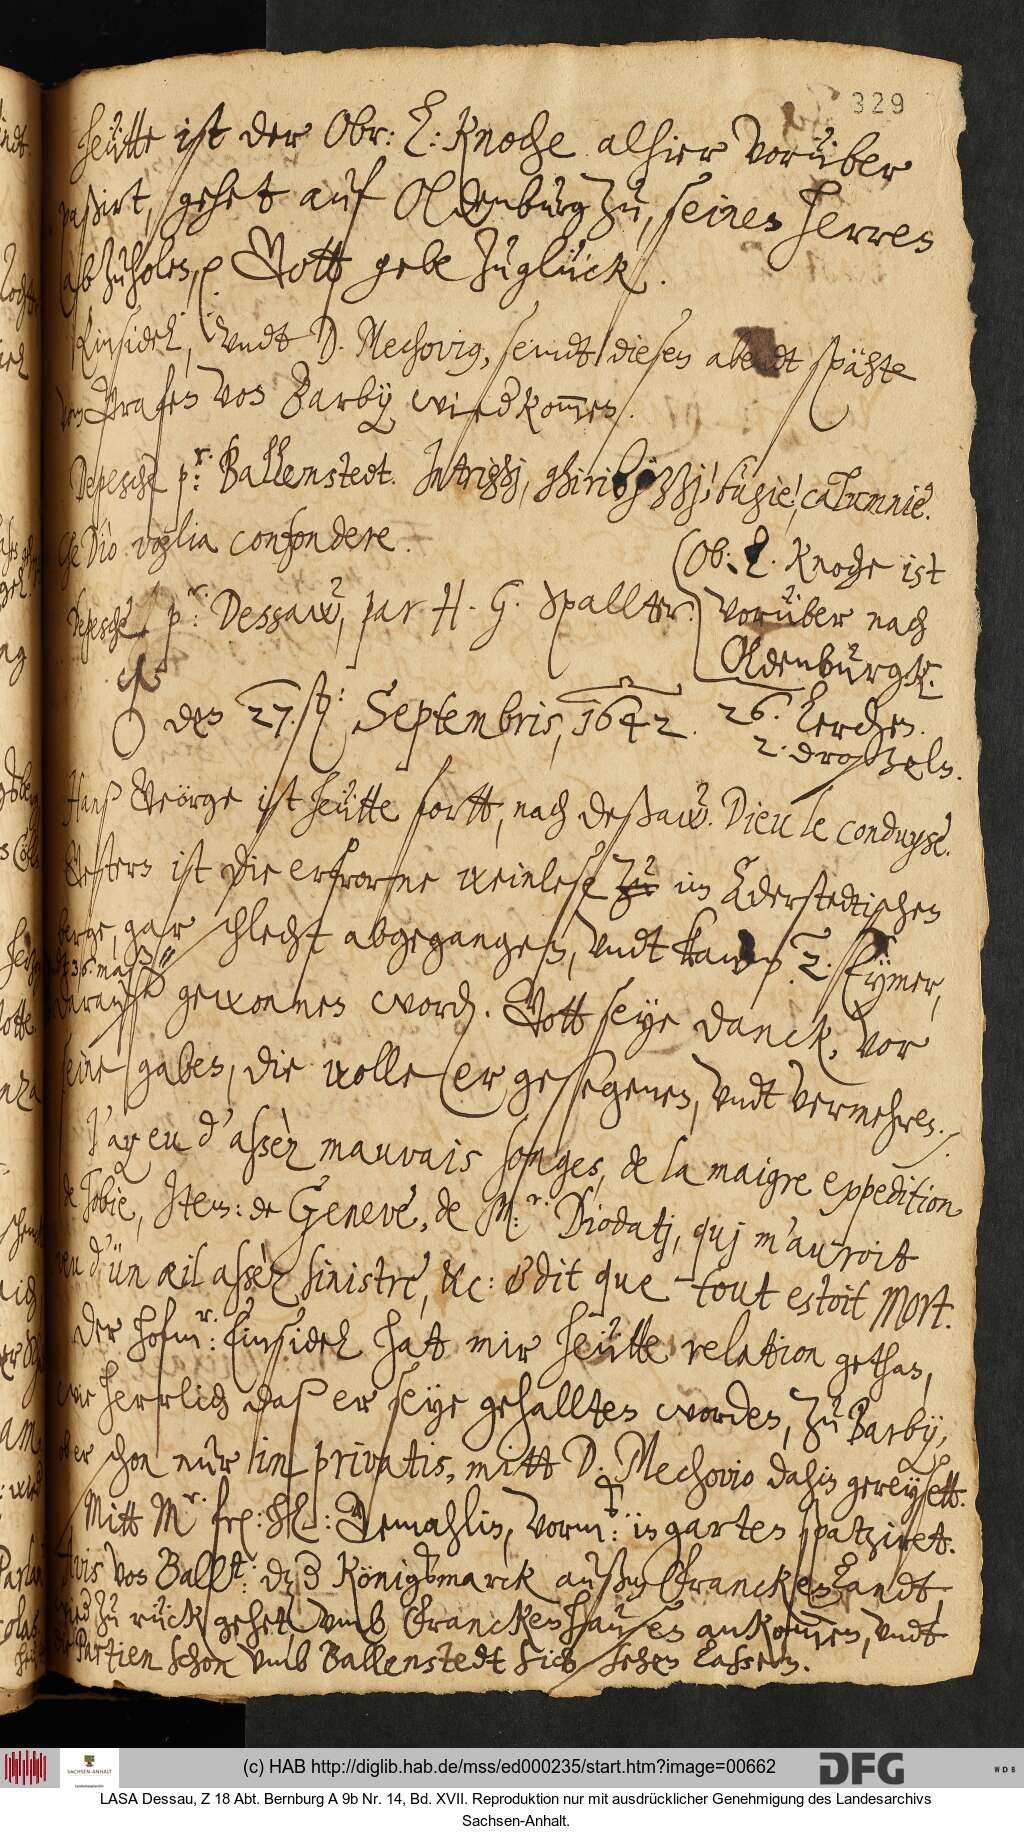 329
heütte ist der Obr: L: Knoche alhier vorüber
paßirt, gehet auf Oldenburg zu, seinen Herren
abzuholen, Gott gebe zu glück.
Einsidel, undt D. Mechovig, seindt diesen abendt spähte
vom Grafen von Barby wiedkommen.
Depesche p.r: Ballenstedt. Intrighj, ghiribizzj! bugie! calumnie!
che Dio voglia confondere.
(Ob: L. Knoche ist
vorüber nach
Oldenburgk.
Depesche p.r: Dessaw, par H. G. Spallter.
☉ den 27. st: Septembris, 1642.
26. Lerchen.
2. droßeln.
Hanß Geörge ist heütte fortt, nach deßaw. Dieu le conduyse.
Gestern ist die erfrorne weinlese zu im Ederstedtischen
berge, gar schlecht abgegangen, undt kaum 2. Eymer,
36 maß
darauß gewonnen word. Gott seye danck, vor
seine gaben, die wolle er gesegenen, undt vermehren.
J'ay eu d'assèz mauvais songes, de la maigre expedition
de Tobie, Item: de Geneve, de M.r: Diodatj, quj m'auroit
veu d'ün œil assèz sinistre, &c: & dit que tout estoit mort.
Der hofm.r: Einsidel hat mir heütte relation gethan,
wie herrlich daß er seye gehallten worden, zu Barby,
ob er schon nur in privatis, mitt D. Mechovio dahin gereysett.
Mitt M.r frl: hl: Gemahlin, vorm: in garten spatziret.
Avis von Ballst: dz Königsmarck außm Franckenlandt,
wied zu rück gehet, umb Franckenhausen ankommen, undt
die Partien schon umb Ballenstedt sich sehen laßen.
(c) HAB http://diglib.hab.de/mss/ed000235/start.htm?image=00662
SACHSEN-ANHALT
DFG
WDB
LASA Dessau, Z 18 Abt. Bernburg A 9b Nr. 14, Bd. XVII. Reproduktion nur mit ausdrücklicher Genehmigung des Landesarchivs
Sachsen-Anhalt.